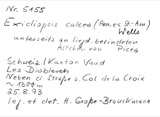 Nr. 5155
Exidiopsis calcea (Pers. ex St-Am)
Wells
unterseits an liegd. berindeten
Ästchen von Picea
Schweiz / Kanton Vaud
Les Diablerets
Neben d. Straße z. Col de la Croix
~ m
25.8.93
leg. et det. H. Große-Brauckmann